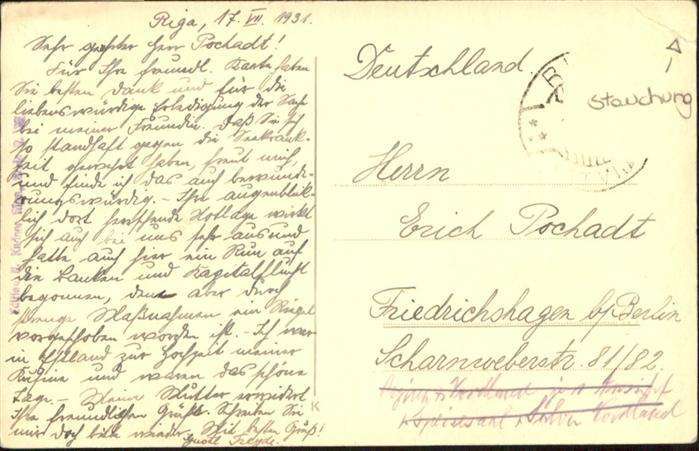 Riga, 17. VII. 1931.
Sehr geehrter Herr Pochadt!
Für Ihre freundl. Karte haben
Sie besten Dank und für die
liebenswürdige Erledigung der Sache
bei meiner Freundin. Daß Sie sich
so standhaft gegen die Seekrank-
heit gewehrt haben, freut mich,
und finde ich das auch bewunde-
rungswürdig. – Ihre augenblick-
lich dort herrschende Notlage wirkt
sich auch bei uns sehr aus und
hatte auch hier ein Run auf
die Banken und Kapitalflucht
begonnen, dem aber durch
strenge Maßnahmen ein Riegel
vorgeschoben worden ist. – Ich war
in Estland zur Hochzeit meiner
Kusine und waren das schöne
Tage. – Meine Mutter erwidert
Ihre freundlichen Grüße. Schreiben Sie
mir doch bitte wieder. Mit besten Gruß!
Deutschland.
Stauchung
Herrn
Erich Pochadt
Friedrichshagen b/Berlin
Scharnweberstr. 81/82.